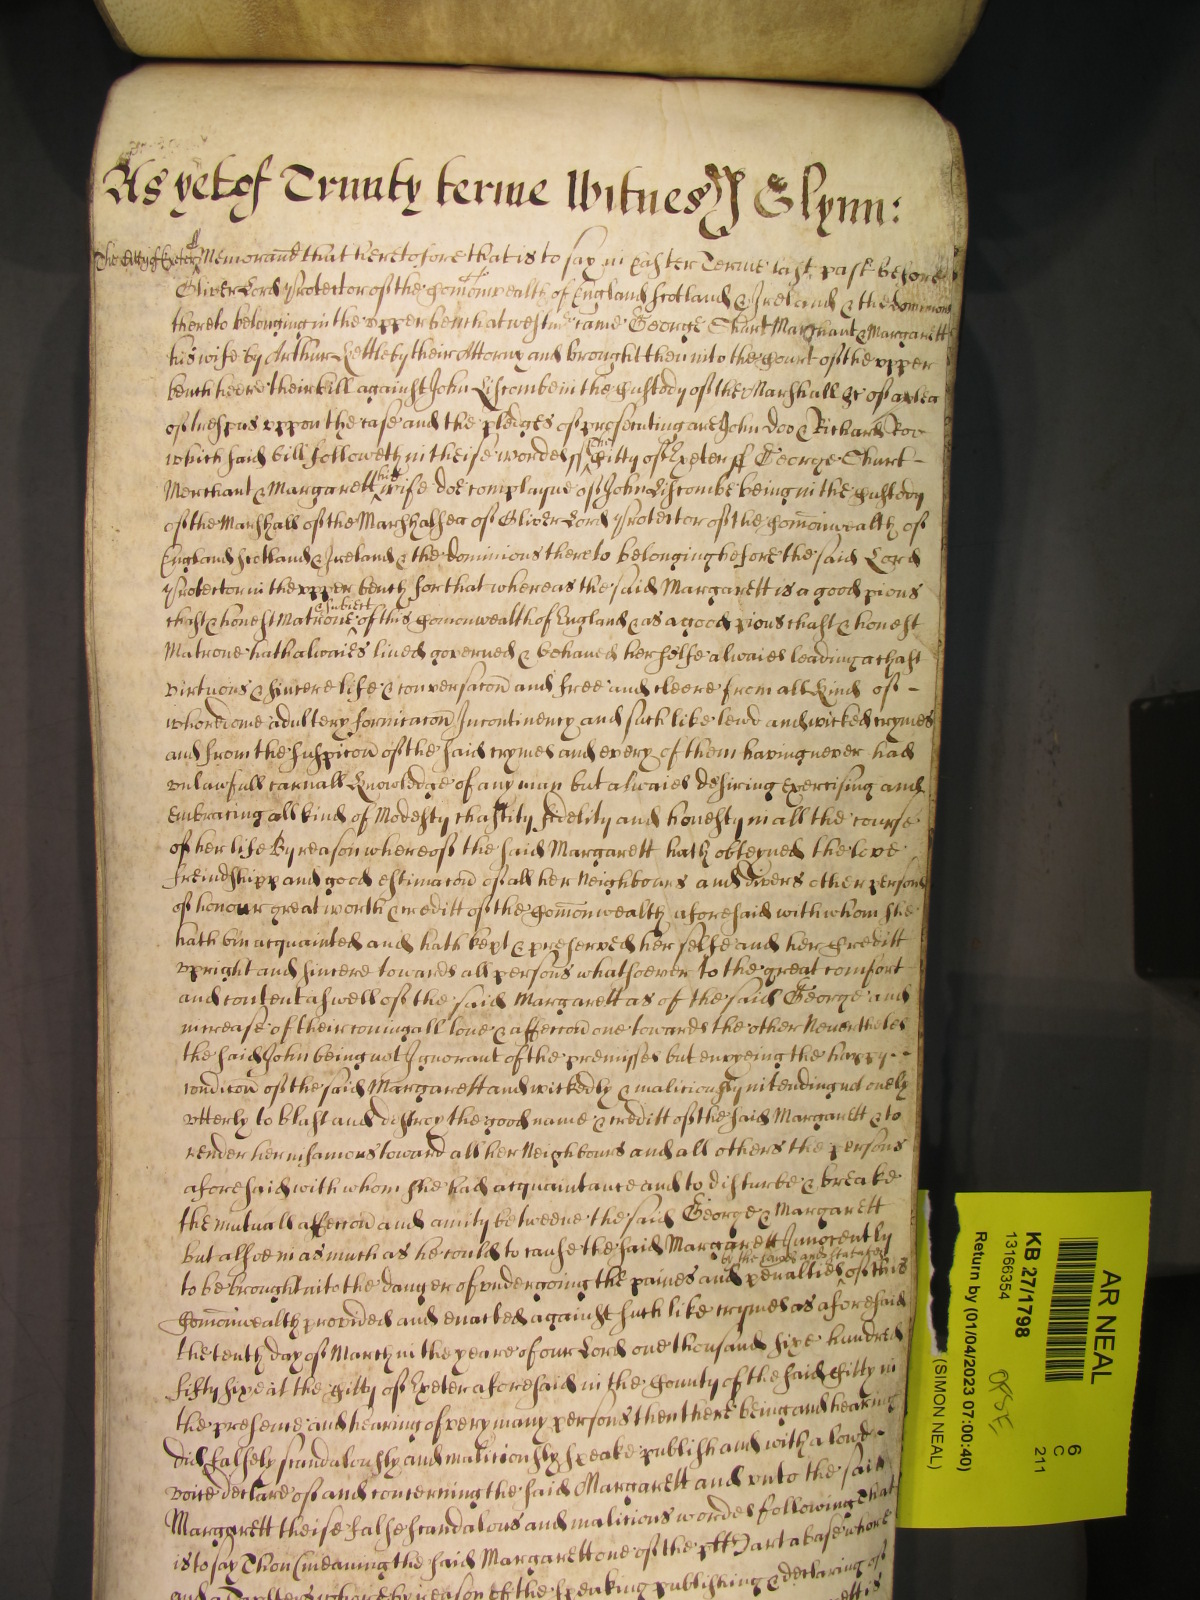 As yet of Trinity terme Witnes J Glynn:
The Citty of Exeter ss Memorand that heretofore that is to say in Easter Terme last past before
Oliver Lord Protector of the Comonwealth of England Scotland & Ireland & the dominions
thereto belonging in the upper bench at westm came George Short Marchant & Margarett
his wife by Arthur Kettleby their Attorny and brought then into the Court of the upper
bench heere their bill against John Liscombe in the Custody of the Marshall &c of a plea
of trespas uppon the case and the pledges of prosecuting are John Doo & Richard Roo
which said bill followeth in theise wordes ss The Citty of Exeter ss George Short
Merchant & Margarett his wife doe complayne of John Liscombe being in the Custody
of the Marshall of the Marshalsea of Oliver Lord Protector of the Comonwealth of
England Scotland & Ireland & the dominions thereto belonging before the said Lord
Protector in the upper bench for that whereas the said Margarett is a good pious
chast & honest Matrone & subiect of this Comonwealth of England & as a good pious chast & honest
Matrone hath alwaies lived governed & behaved her selfe alwaies leading a chast
virtuous & sincere life & conversacon and free and cleere from all kind of
whoredome adultery fornicacon Incontinency and such like lewd and wicked crymes
and from the suspicon of the said crymes and every of them having never had
unlawfull carnall knowledge of any man but alwaies desiring exercising and
embracing all kind of Modesty chastity fidelity and honesty in all the course
of her life By reason whereof the said Margarett hath obteyned the love
freindshipp and good estimacon of all her Neighbours and divers other persons
of honour great worth & creditt of the Comonwealth aforesaid with whom she
hath bin acquainted and hath kept & preserved her selfe and her Creditt
upright and sincere towards all persons whatsoever to the great comfort
and content aswell of the said Margarett as of the said George and
increase of their coniugall love & affeccon one towards the other Neverthelès
the said John being not Ignorant of the premisses but envyeing the happy
condicon of the said Margarett and wickedly & maliciously intending not onely
utterly to blast and distroy the good name & creditt of the said Margarett & to
render her infamous toward all her Neighbours and all others the persons
aforesaid with whom she had acquaintance and to disturbe & breake
the mutuall affeccon and amity betweene the said George & Margarett
but alsoe in as much as he could to cause the said Margarett Innocently
to be brought into the danger of undergoing the paines and penalties by the lawes and statutes of this
Comonwealth provided and enacted against such like crymes as aforesaid
the tenth day of March in the yeare of our Lord one thousand sixe hundred
fifty sixe at the Citty of Exeter aforesaid in the County of the said Citty in
the presence and hearing of very many persons then there being and hearing
did falsely scandalously and maliciously speake publish and with a lowd
voice declare of and concerning the said Margarett and unto the said
Margarett theise false scandalous and malicious wordes following that
is to say Thou (meaning the said Margarett one of the ptts) art a base whore
and a whore by reason of the speaking publishing & declaring of
AR NEAL
KB 27/1798
13166354
Return by (01/04/2023 07:00:40)
(SIMON NEAL)
OPSE
6
C
211